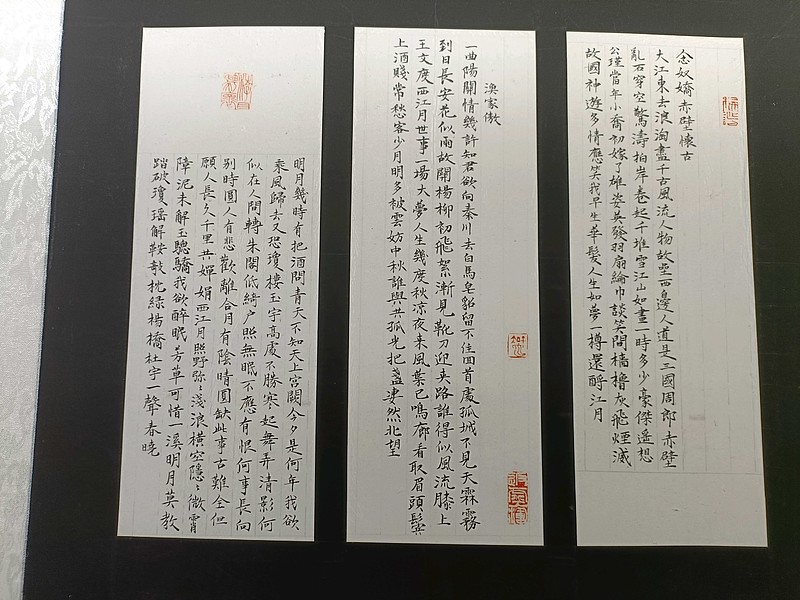 念奴嬌 赤壁懷古
大江東去浪淘盡千古風流人物故壘西邊人道是三國周郎赤壁
亂石穿空驚濤拍岸卷起千堆雪江山如畫一時多少豪傑遙想
公瑾當年小喬初嫁了雄姿英發羽扇綸巾談笑間檣櫓灰飛煙滅
故國神遊多情應笑我早生華髮人生如夢一樽還酹江月
漁家傲
一曲陽關情幾許知君欲向秦川去白馬皂貂留不住回首處孤城不見天霖霧
到日長安花似雨故關楊柳初飛絮漸見靴刀迎夾路誰得似風流膝上
王文度西江月世事一場大夢人生幾度秋涼夜來風葉已鳴廊看取眉頭鬢
上酒賤常愁客少月明多被雲妨中秋誰與共孤光把盞淒然北望
明月幾時有把酒問青天不知天上宮闕今夕是何年我欲
乘風歸去又恐瓊樓玉宇高處不勝寒起舞弄清影何
似在人間轉朱閣低綺户照無眠不應有恨何事長向
别時圓人有悲歡離合月有陰晴圓缺此事古難全但
願人長久千里共嬋娟西江月照野弥弥淺浪橫空隱隱微霄
障泥未解玉驄驕我欲醉眠芳草可惜一溪明月莫教
踏破瓊瑶解鞍欹枕綠楊橋杜宇一聲春曉